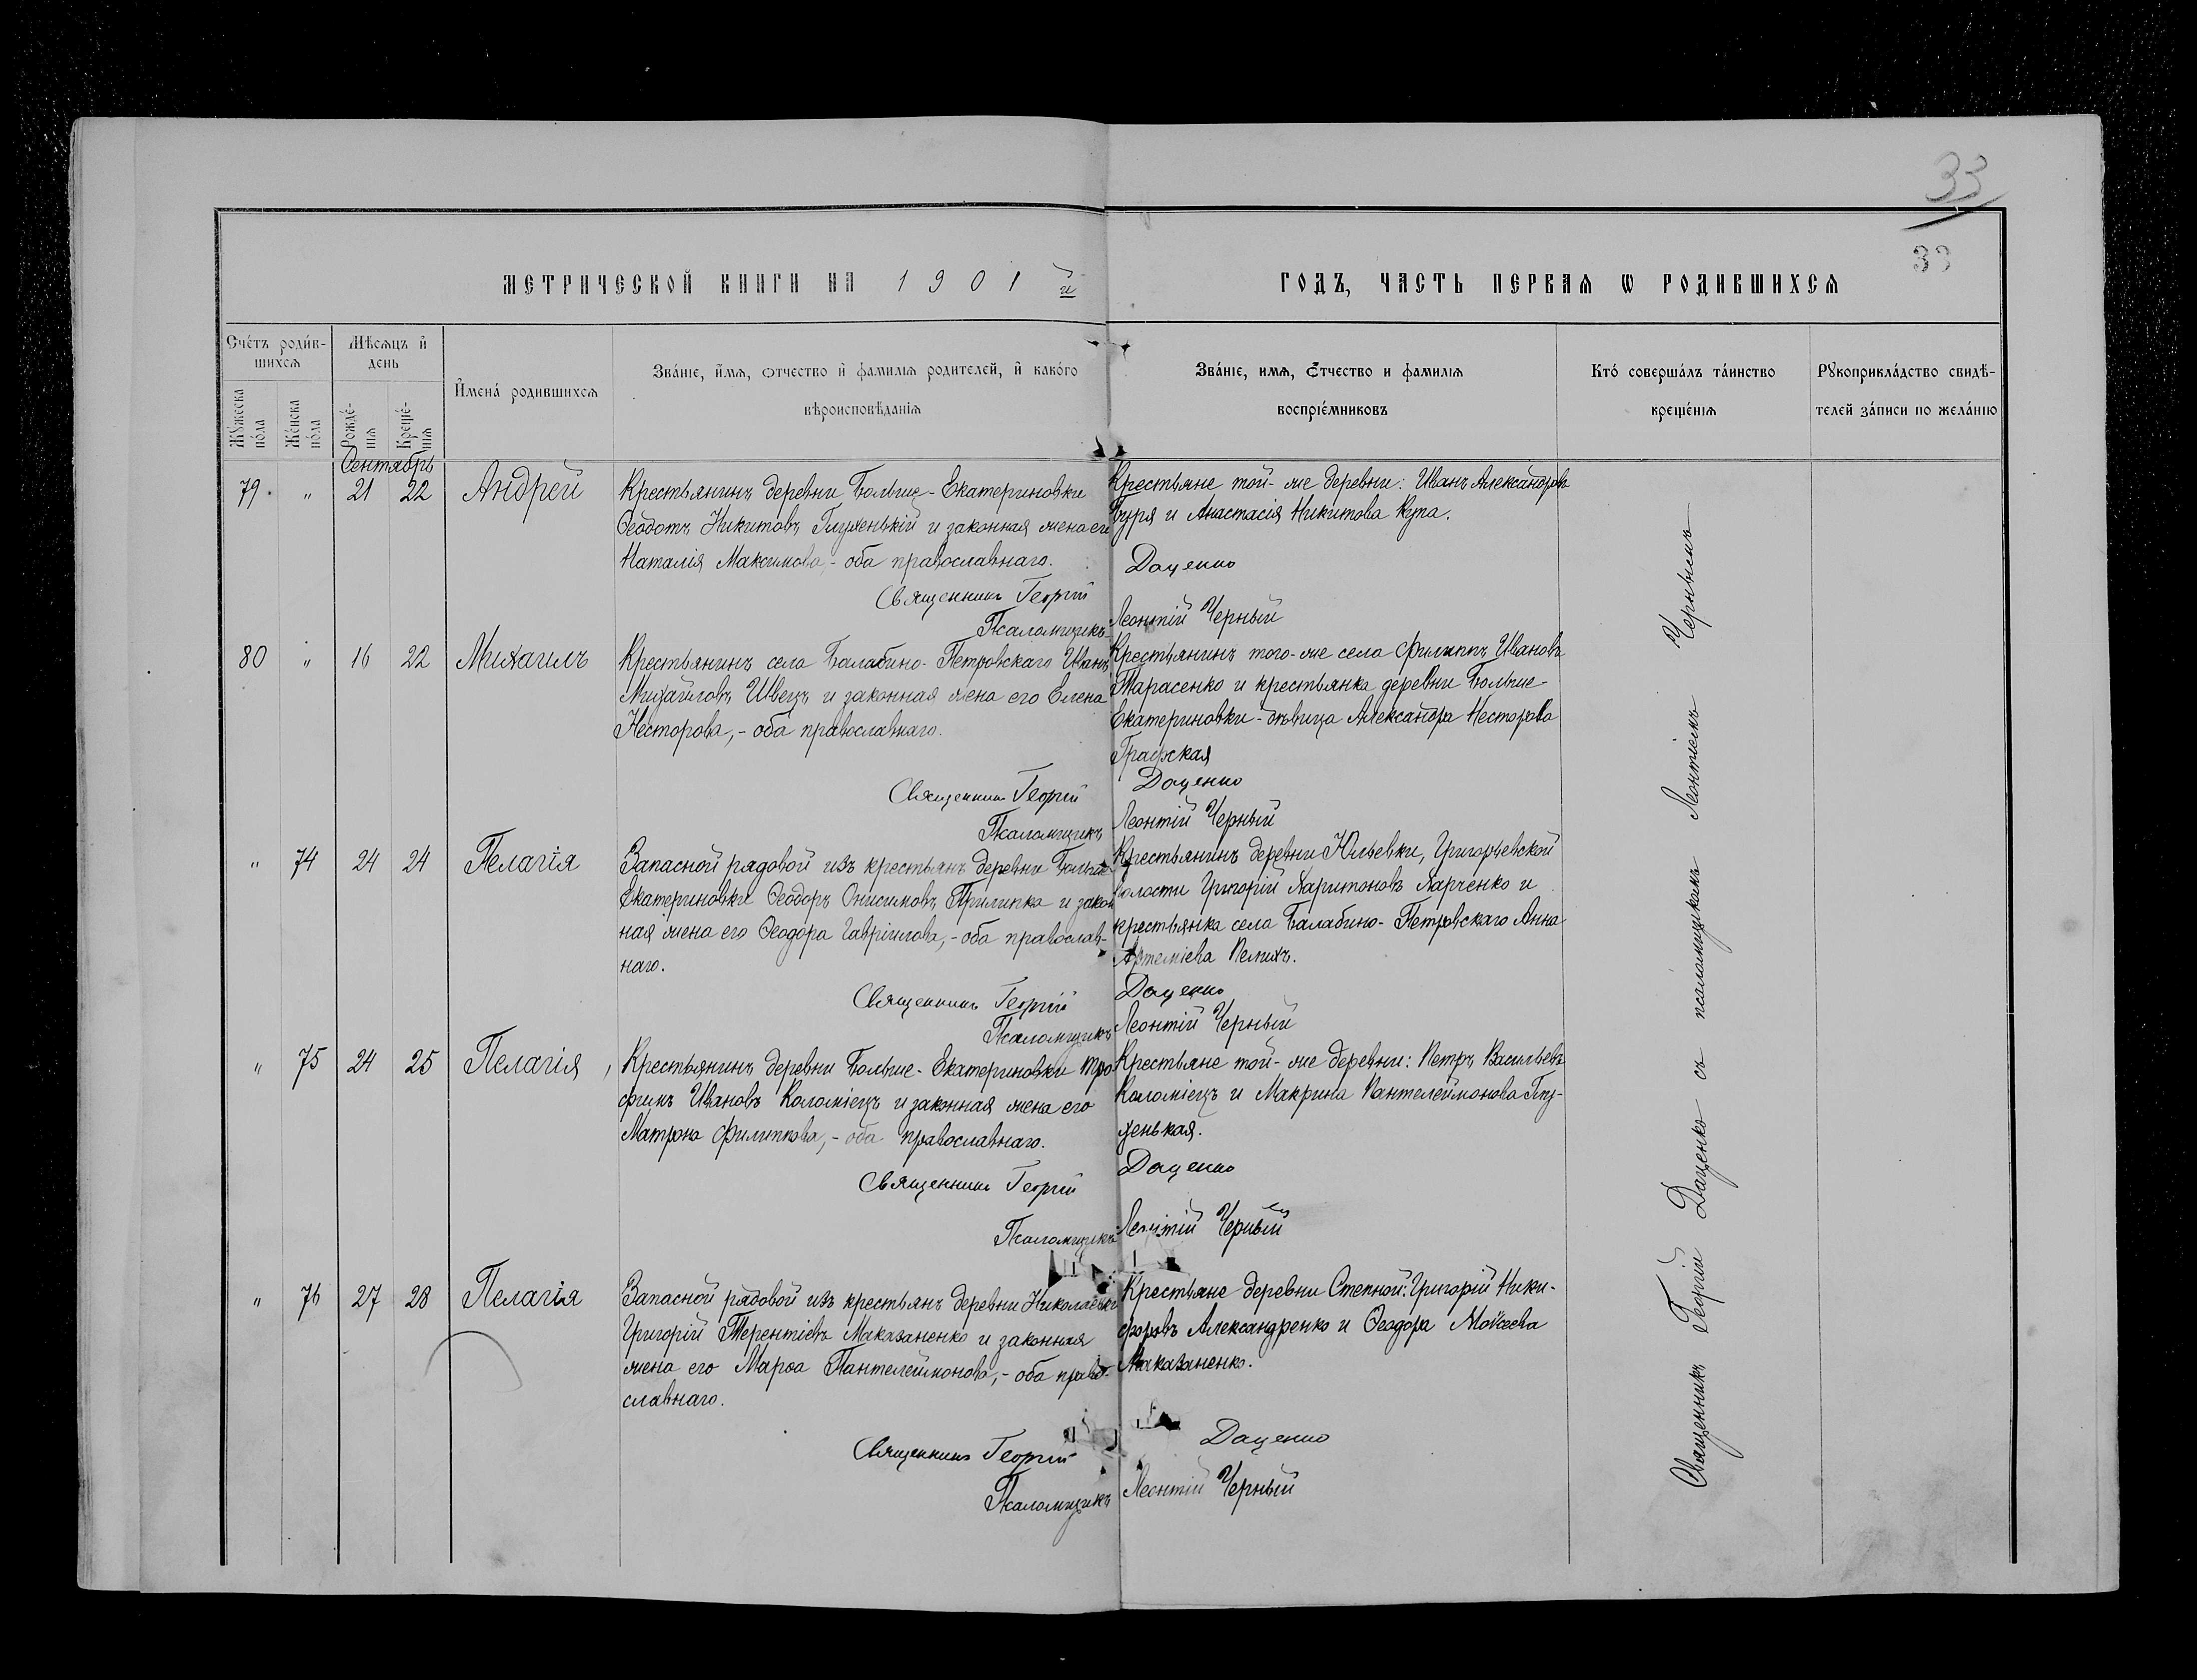 33
33
МЕТРИЧЕСКОЙ КНИГИ НА 1901 й ГОДЪ, ЧАСТЬ ПЕРВАѦ Ѡ РОДИВШИХСѦ
Счéтъ роди́в-
шихсѧ
Мѣсѧцъ и҆
день
Мꙋ́жеска
по́ла
Же́нска
по́ла
Рожде́-
нїѧ
Креще́-
нїѧ
И҆мена́ родившихсѧ
Зва́нїе, и҆́мѧ, ѻтчество и҆ фамилїѧ родителей, и҆ како́го
вѣроисповѣданїѧ
Зва́нїе, имѧ, Ѻтчество и фамилїѧ
воспрїе́мниковъ
Кто́ совершáлъ та́инство
креще́нїѧ
Рꙋкоприкла́дство свидѣ-
телей за́писи по жела́нїю
Сентябрь
79. " 21 22 Андрей
Крестьянинъ деревни Больше-Екатериновки
Ѳеодотъ Никитовъ Глухенькій и законная жена его
Наталія Максимова,- оба православнаго.
Священникъ Георгій
Псаломщикъ
Крестьяне той-же деревни: Иванъ Александровъ
Буря и Анастасія Никитова Купа.
Даценко
Леонтій Черный
80 " 16 22 Михаилъ
Крестьянинъ села Балабино-Петровскаго Иванъ
Михайловъ Швецъ и законная жена его Елена
Несторова,- оба православнаго.
Священникъ Георгій
Псаломщикъ
Крестьянинъ того-же села Филиппъ Ивановъ
Тарасенко и крестьянка деревни Больше-
Екатериновки-дѣвица Александра Несторова
Графская
Даценко
Леонтій Черный
" 74 24 24 Пелагія
Запасной рядовой изъ крестьянъ деревни Больше-
Екатериновки Ѳеодоръ Онисимовъ Прилипка и закон
ная жена его Ѳеодора Гавріилова,- оба православ-
наго.
Священникъ Георгій
Псаломщикъ
Крестьянинъ деревни Юльевки, Григорьевской
волости Григорій Харитоновъ Харченко и
крестьянка села Балабино-Петровскаго Анна
Артеміева Пемихъ.
Даценко
Леонтій Черный
" 75 24 25 Пелагія
Крестьянинъ деревни Больше-Екатериновки Тро
фимъ Ивановъ Коломіецъ и законная жена его
Матрона Филиппова,- оба православнаго.
Священникъ Георгій
Псаломщикъ
Крестьяне той-же деревни: Петръ Васильевъ
Коломіецъ и Макрина Пантелеймонова Глу-
хенькая.
Даценко
Леонтій Черный
" 76 27 28 Пелагія
Запасной рядовой изъ крестьянъ деревни Николаевки
Григорій Терентіевъ Маказаненко и законная
жена его Марѳа Пантелеймонова,- оба право-
славнаго.
Священникъ Георгій
Псаломщикъ
Крестьяне деревни Степной: Григорій Ники-
форовъ Александренко и Ѳеодора Моѵсеева
Маказаненко.
Даценко
Леонтій Черный
Священникъ Георгій Даценко съ псаломщикомъ Леонтіемъ Чернымъ